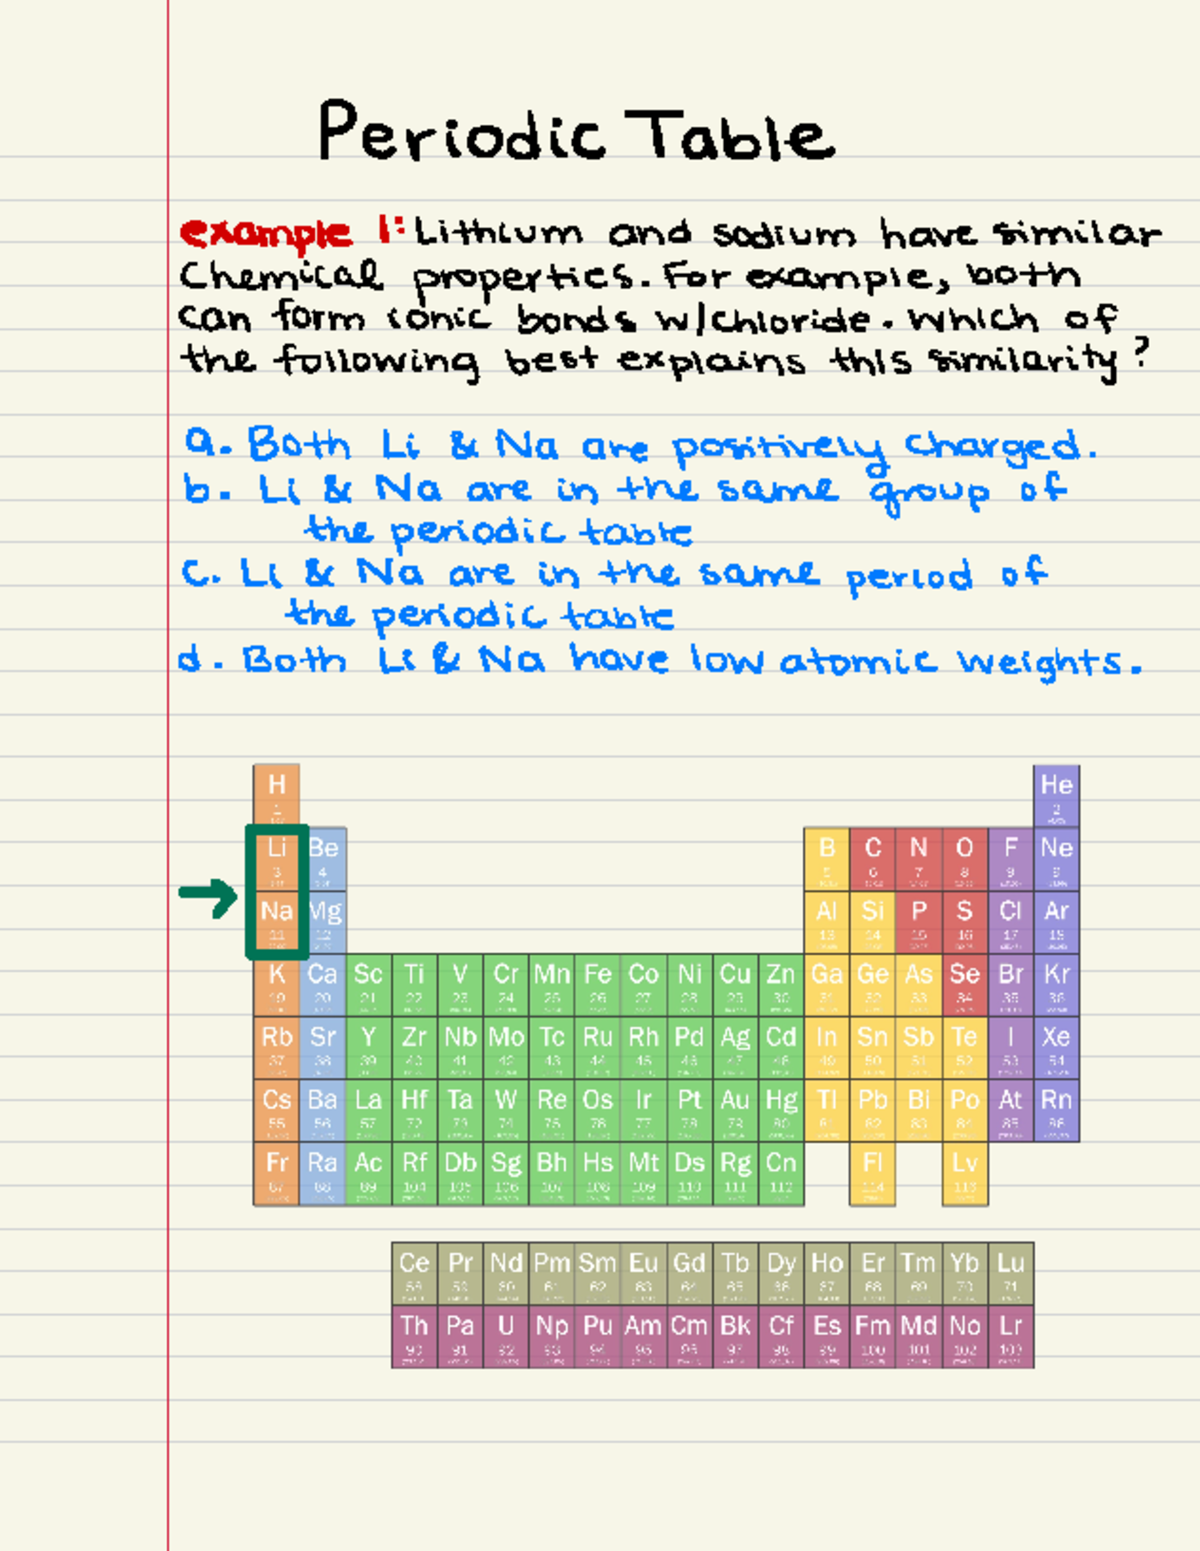 Periodic Table
example 1: Lithium and sodium have similar
Chemical properties. For example, both
can form ionic bonds w/chloride. Which of
the following best explains this similarity?
a. Both Li & Na are positively charged.
b. Li & Na are in the same group of
the periodic table
c. Li & Na are in the same period of
the periodic table
d. Both Li & Na have low atomic weights.
H He
1 2
Li Be B C N O F Ne
3 4 5 6 7 8 9
Na Mg Al Si P S Cl Ar
11 12 13 14 15 16 17 18
K Ca Sc Ti V Cr Mn Fe Co Ni Cu Zn Ga Ge As Se Br Kr
19 20 21 22 23 24 25 26 27 28 29 30 31 32 33 34 35 36
Rb Sr Y Zr Nb Mo Tc Ru Rh Pd Ag Cd In Sn Sb Te I Xe
37 38 39 40 41 42 43 44 45 46 47 48 49 50 51 52 53 54
Cs Ba La Hf Ta W Re Os Ir Pt Au Hg Tl Pb Bi Po At Rn
55 56 57 72 73 74 75 76 77 78 79 80 81 82 83 84 85 86
Fr Ra Ac Rf Db Sg Bh Hs Mt Ds Rg Cn Fl Lv
87 88 89 104 105 106 107 108 109 110 111 112 114
Ce Pr Nd Pm Sm Eu Gd Tb Dy Ho Er Tm Yb Lu
58 59 61 62 63 64 65 67 68 69 70 71
Th Pa U Np Pu Am Cm Bk Cf Es Fm Md No Lr
90 91 92 93 94 95 96 97 98 99 100 101 102 103